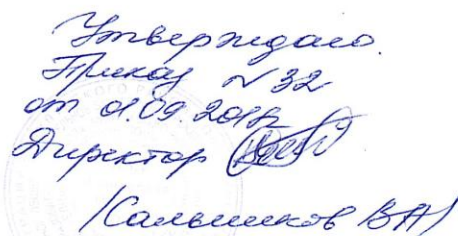 Утверждаю.
Приказ №32
от 01.09.2017г
Директор
/Сальников ВА/